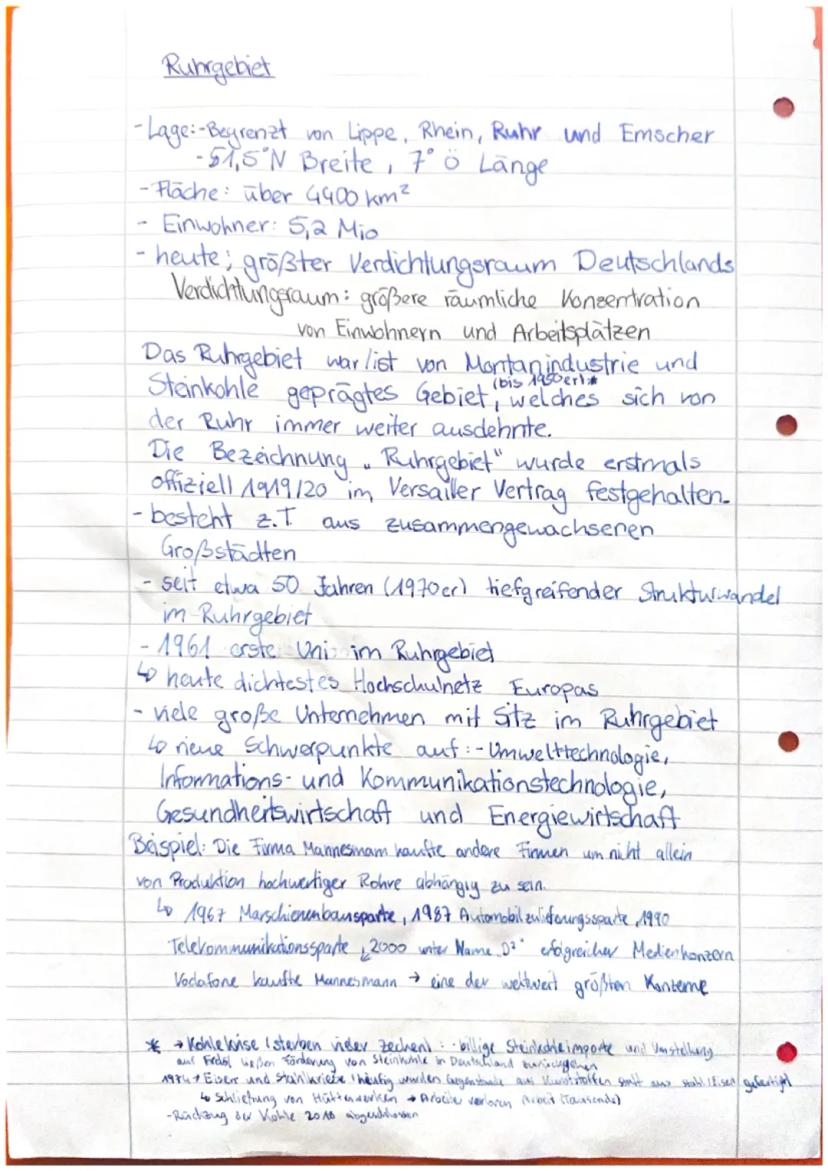 Ruhrgebiet
- Lage: - Begrenzt von Lippe, Rhein, Ruhr und Emscher
- 51,5°N Breite, 7° ö Länge
- Fläche: über 4400 km²
- Einwohner: 5,2 Mio
- heute: größter Verdichtungsraum Deutschlands
Verdichtungsraum: größere räumliche Konzentration
von Einwohnern und Arbeitsplätzen
Das Ruhrgebiet war/ist von Montanindustrie und
(bis 1950er)*
Steinkohle geprägtes Gebiet, welches sich von
der Ruhr immer weiter ausdehnte.
Die Bezeichnung „Ruhrgebiet" wurde erstmals
offiziell 1919/20 im Versailler Vertrag festgehalten.
- besteht z.T. aus zusammengewachsenen
Großstädten
- seit etwa 50 Jahren (1970er) tiefgreifender Strukturwandel
im Ruhrgebiet
- 1961 erste Uni im Ruhrgebiet
↳ heute dichtestes Hochschulnetz Europas
- viele große Unternehmen mit Sitz im Ruhrgebiet
↳ neue Schwerpunkte auf: - Umwelttechnologie,
Informations- und Kommunikationstechnologie,
Gesundheitswirtschaft und Energiewirtschaft
Beispiel: Die Firma Mannesmann kaufte andere Firmen um nicht allein
von Produktion hochwertiger Rohre abhängig zu sein.
↳ 1967 Marschienenbausparte, 1987 Automobilzulieferungssparte, 1990
Telekommunikationssparte, 2000 unter Name „D2" erfogreicher Medienkonzern
Vodafone kaufte Mannesmann → eine der weltweit größten Konzerne
* → Kohlekrise (sterben vieler Zechen): - billige Steinkohleimporte und Umstellung
auf Erdöl ließen Förderung von Steinkohle in Deutschland zurückgehen
1974 → Eisen und Stahlkriese (häufig wurden Gegenstände aus Kunststoffen statt aus Stahl/Eisen gefertigt)
↳ Schließung von Hüttenwerken → Arbeiter verloren Arbeit (Tausende)
- Rückzug der Kohle 2018 abgeschlossen